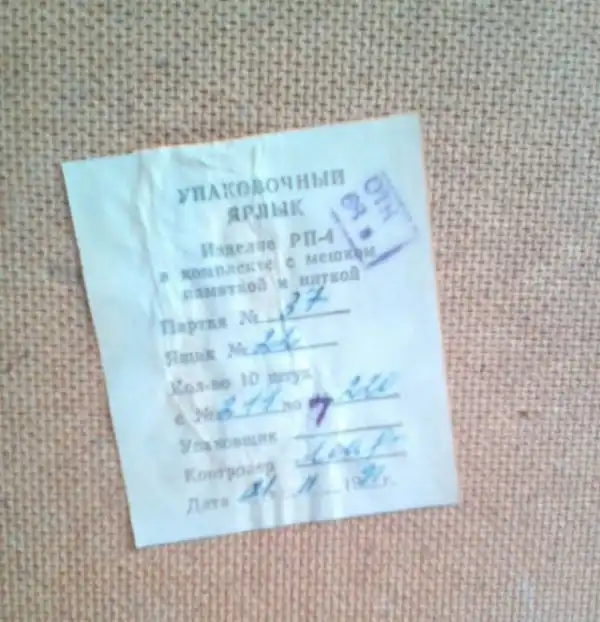 УПАКОВОЧНЫЙ
ЯРЛЫК
Изделие РП-4
в комплекте с мешком
памяткой и ниткой
Партия № 37
Ящик №
Кол-во 10 штук
с № 211 по 220
Упаковщик 7
Контролер
Дата 11 19 г.